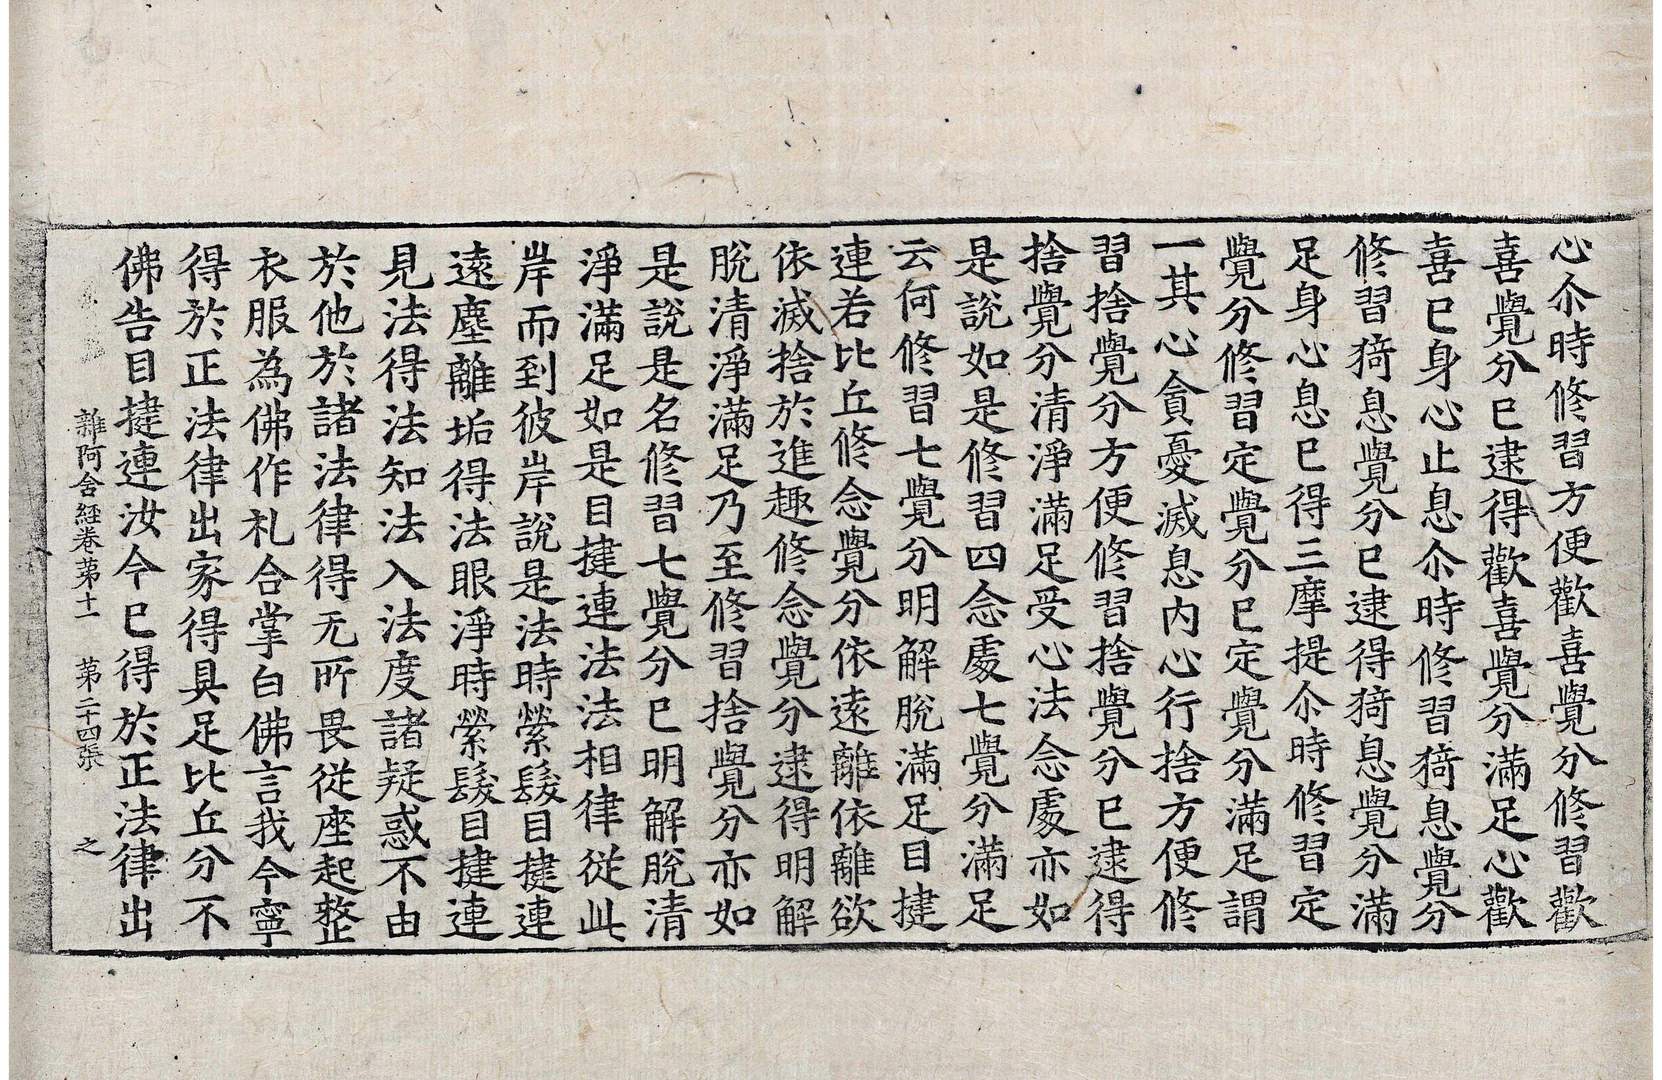 心尒時修習方便歡喜覺分修習歡
喜覺分已逮得歡喜覺分滿足心歡
喜已身心止息尒時修習猗息覺分
修習猗息覺分已逮得猗息覺分滿
足身心息已得三摩提尒時修習定
覺分修習定覺分已定覺分滿足謂
一其心貪憂滅息內心行捨方便修
習捨覺分方便修習捨覺分已逮得
捨覺分清淨滿足受心法念處亦如
是說如是修習四念處七覺分滿足
云何修習七覺分明解脫滿足目揵
連若比丘修念覺分依遠離依離欲
依滅捨於進趣修念覺分逮得明解
脫清淨滿足乃至修習捨覺分亦如
是說是名修習七覺分已明解脫清
淨滿足如是目揵連法法相律從此
岸而到彼岸說是法時縈髮目揵連
遠塵離垢得法眼淨時縈髮目揵連
見法得法知法入法度諸疑惑不由
於他於諸法律得无所畏從座起整
衣服為佛作礼合掌白佛言我今寧
得於正法律出家得具足比丘分不
佛告目揵連汝今已得於正法律出
雜阿含經卷苐十一 苐二十四張 之